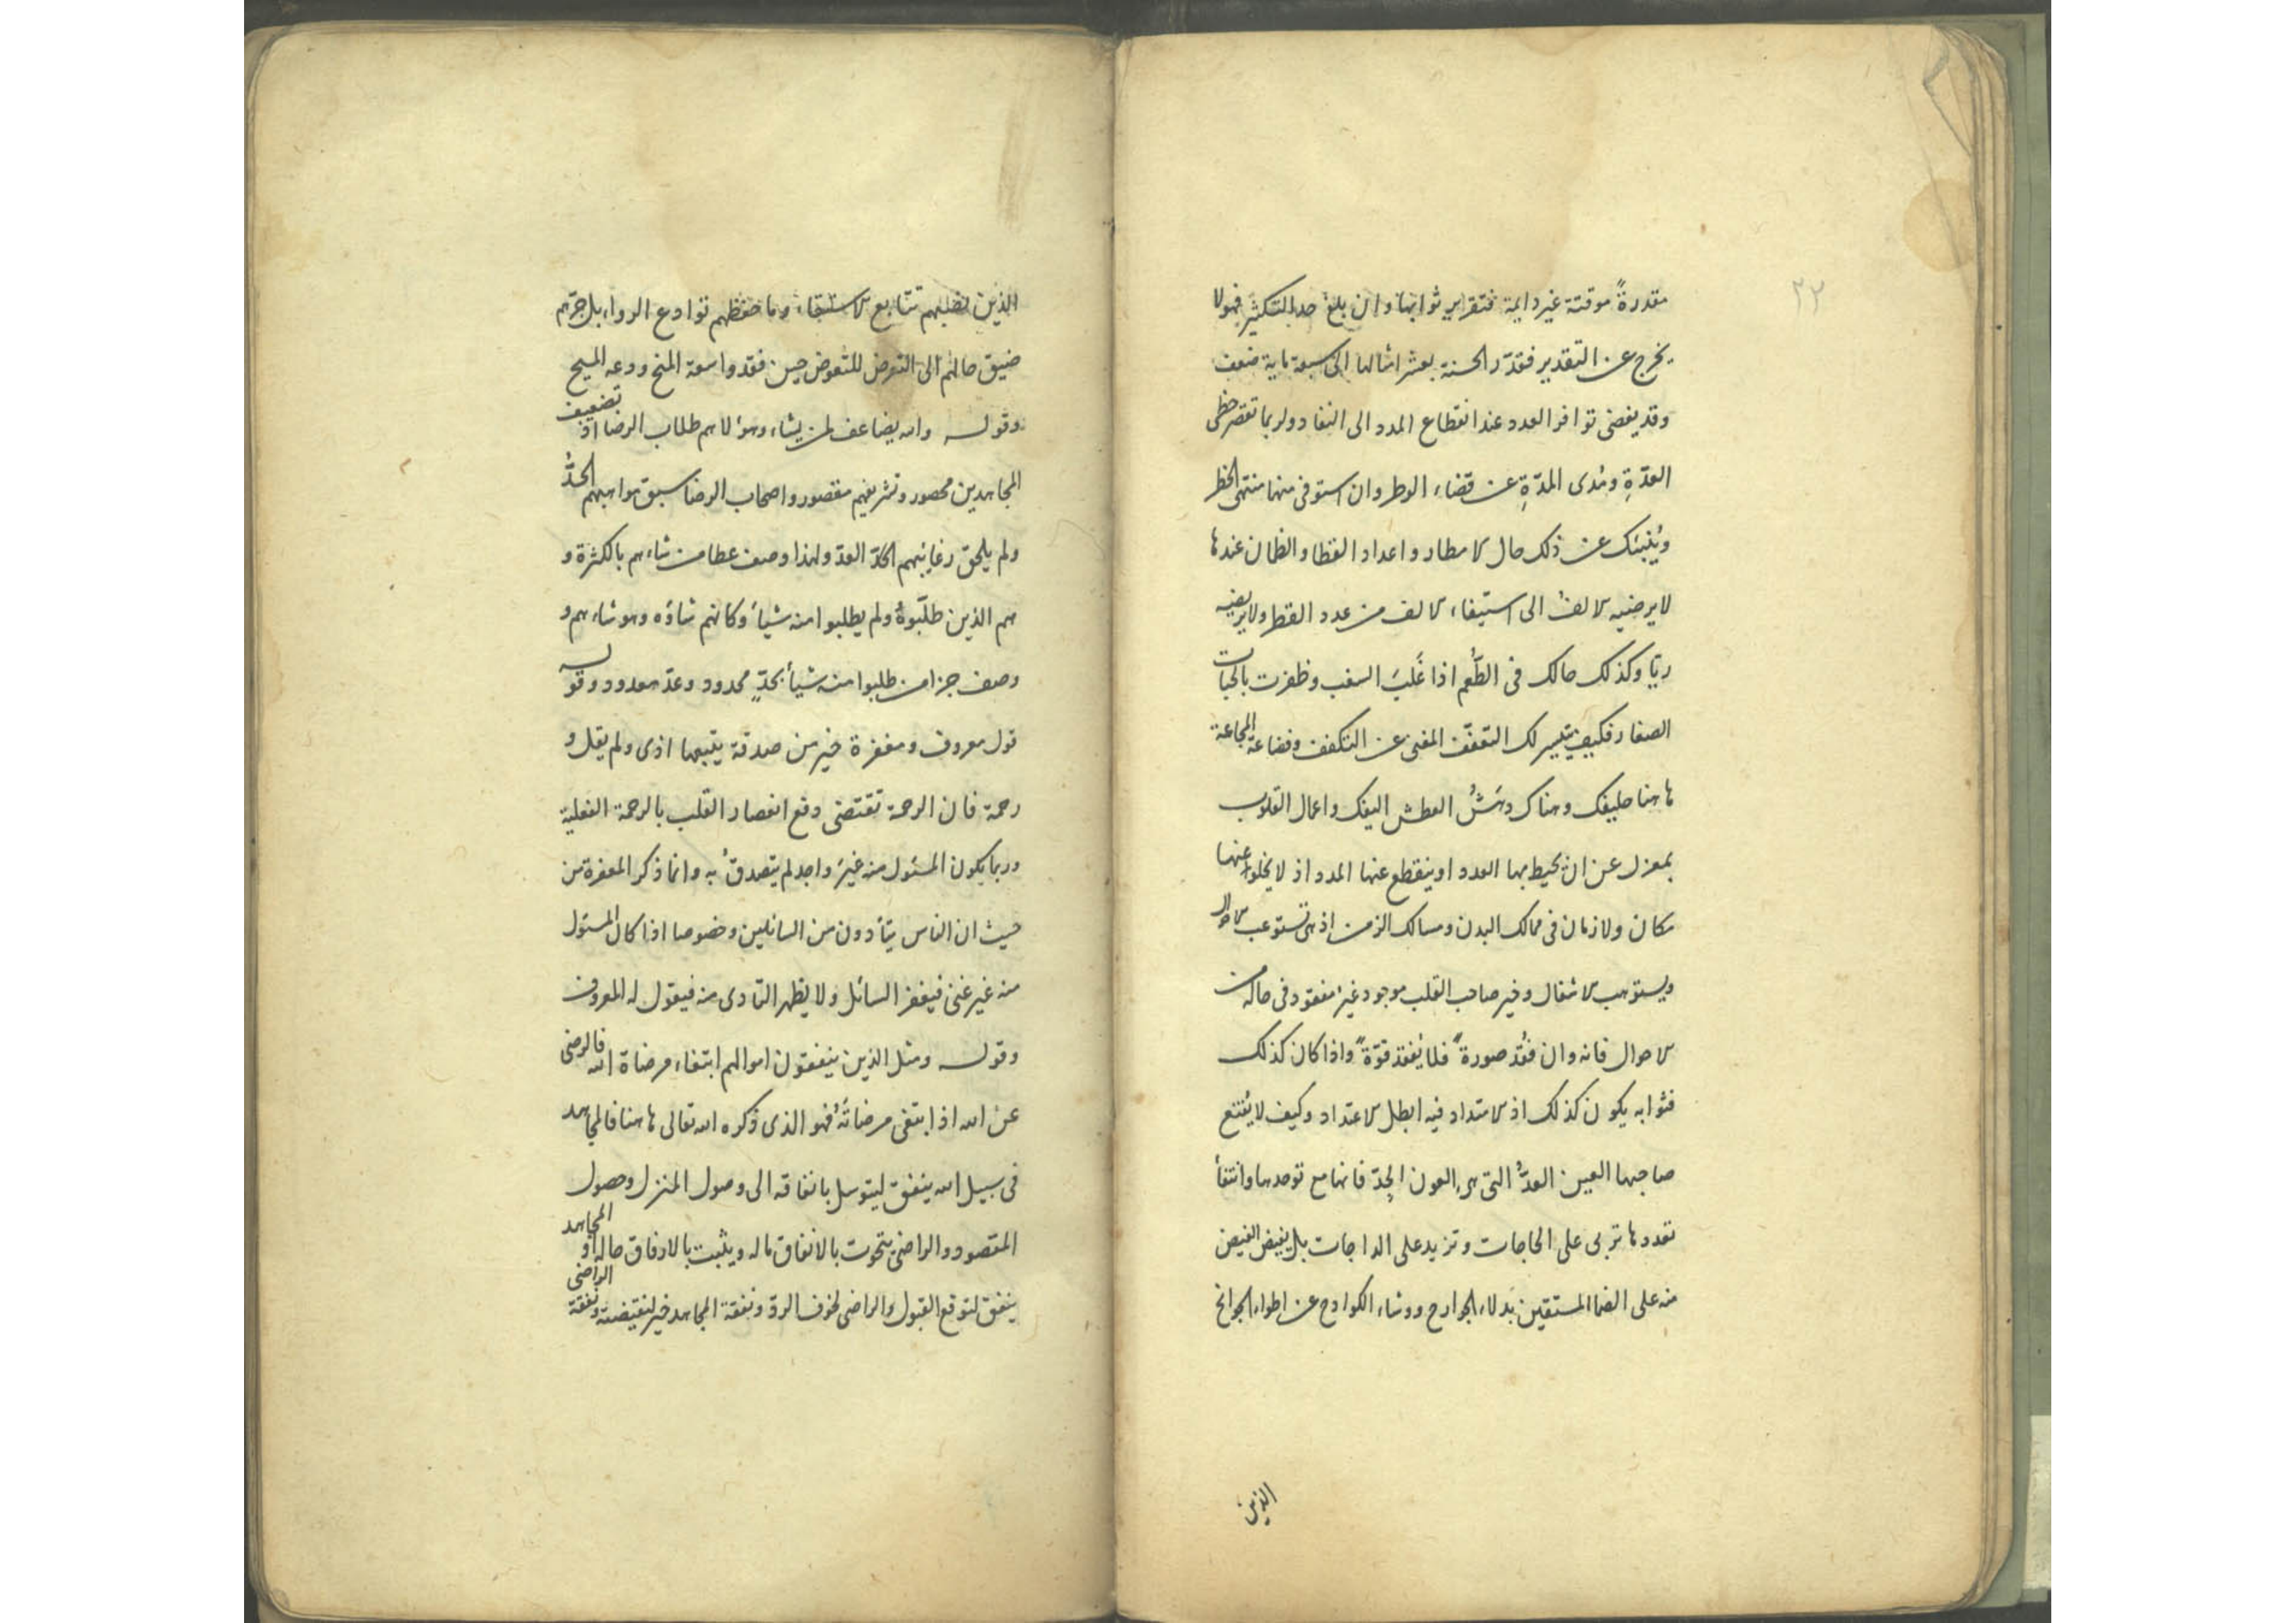 ٢٢
مقدرةً موقتة غير دايمة فتقرير ثوابها وان بلغ حد التكثير فهو لا
يخرج عن التقدير فقدّر الحسنة بعشر امثالها الى سبعماية ضعف
وقد يفضى توافر العدد عند انقطاع المدد الى النفاد ولربما تقصر حظى
العدّةِ ومُدى المدّةِ عن قضاء الوطر وان استوفى منها منتهى الحظر
ويُنبئك عن ذلك حال الامطار واعداد القطار والظمان عندها
لا يرضيه الالفُ الى استيفاء الالف من عدد القطر ولا يريضيه
ريّا وكذلك حالك فى الطُعم اذا غَلبَ السغب وظفرت بالحبات
الصغار فكيف يتيسر لك التعفّف المغنى عن التكفف وفضاعة المجاعة
هاهنا حليفك وهناك دهَشُ العطش اليفك واعمال القلوب
بمعزل عن ان يحيط بها العدد او ينقطع عنها المدد اذ لا يخلو عنها
مكان ولا زمان فى ممالك البدن ومسالك الزمن اذ هى تستوعب الاحوال
ويستوهب الاشغال وخير صاحب القلب موجود غير مفقود فى حالة من
الاحوال فانه وان فُقد صورةً فلا يُفقد قوّةً واذا كان كذلك
فثوابه يكون كذلك اذ الامتداد فيه ابطل الاعتداد وكيف لا يُقنع
صاحبها العين العدُّ التى هى العون الجدّ فانها مع توحدها وانتفأ
تعددها تربى على الحاجات وتزيد على الداجات بل يفيض الفيض
منه على الضما المستقين بَدلاء الجوارح ورشاء الكوادح عن اطواء الجوانح
الذين
الذين تتابع الاستبقاء وما حفظهم توادع الرواء بل جرّهم
ضيق حالهم الى التعرض للتعوض حين فقدوا سعة المنح ودعه المسيح
وقوله والله يضاعف لمن يشاء وهؤلاهم طلاب الرضا اذ تضعيف
المجاهدين محصور وتشريفهم مقصور واصحاب الرضا سبق مواهبهم الحدُّ
ولم يلحق رغايبهم الحدّ العدّ ولهذا وصف عطا من شاءهم بالكثرة و
هم الذين طلبوهُ ولم يطلبوا منه شيأ وكانهم شاؤه وهو شاءهم و
وصف جزا من طلبوا منه شيأ بحدٍّ محدود وعدّ معدود وقوله
قول معروف ومغفرة خير من صدقة يتبعها اذى ولم يقل و
رحمة فان الرحمة تقتضى دفع انعصار القلب بالرحمة الفعلية
وربما يكون المسئول منه غيرَ واجد لم يتصدقُ به وانما ذكر المغفرة من
حيث ان الناس يتأدون من السائلين وخصوصا اذا كان المسئول
منه غير غنى فيغفر السائل ولا يظهر التادى منه فيقول له المعروف
وقوله ومثل الذين ينفقون اموالهم ابتغاء مرضاة الله فالرضى
عن الله اذا ابتغى مرضاتَهُ فهو الذى ذكره الله تعالى هاهنا فالمجاهد
فى سبيل الله ينفق ليتوسل بانفاقه الى وصول المنزل وحصول
المقصود والراضى يتحوت بالانفاق ماله ويثبت بالارفاق حاله او المجاهد
ينفق لتوقع القبول والراضى لخوف الردّ ونفقة المجاهد خير لنقيضته ونفقة الراضى